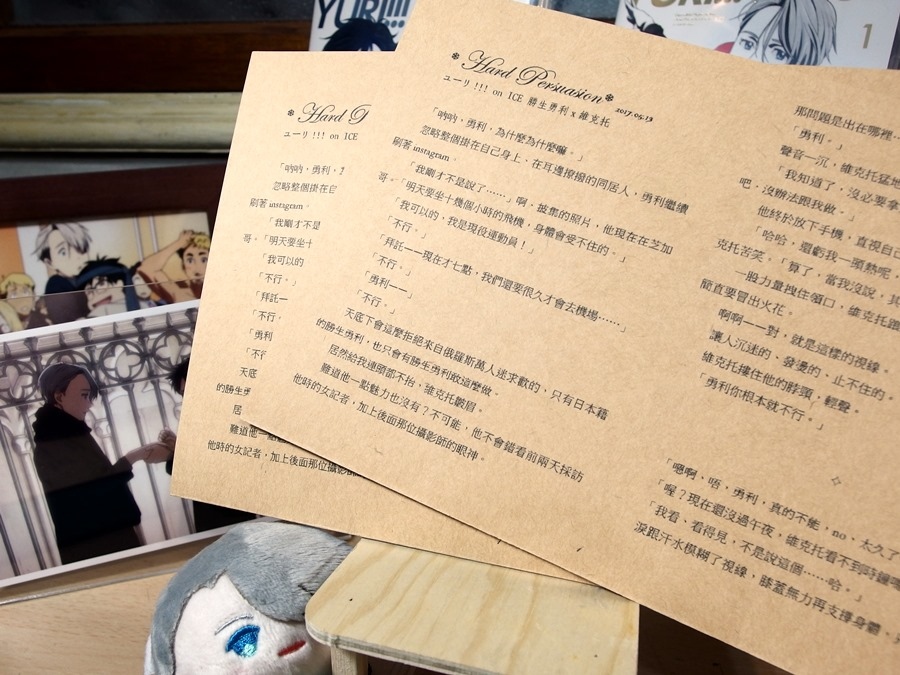 YURI!!!
1
Hard Persuasion
2017.05.13
ユーリ !!! on ICE 勝生勇利 x 維克托
「吶吶，勇利，為什麼為什麼嘛。」
忽略整個掛在自己身上、在耳邊撩撥的同居人，勇利繼續
刷著 instagram。
「我剛才不是說了……」啊，披集的照片，他現在在芝加
哥。「明天要坐十幾個小時的飛機，身體會受不住的。」
「我可以的，我是現役運動員！」
「不行。」
「拜託——現在才七點，我們還要很久才會去機場……」
「不行。」
「勇利——」
「不行。」
天底下會這麼拒絕來自俄羅斯萬人迷求歡的，只有日本籍
的勝生勇利，也只會有勝生勇利敢這麼做。
居然給我連頭都不抬，維克托皺眉。
難道他一點魅力也沒有？不可能，他不會錯看前兩天採訪
他時的女記者，加上後面那位攝影師的眼神。
那問題是出在哪裡
「勇利。」
聲音一沉，維克托猛地
「我知道了，沒必要拿
吧，沒辦法跟我做。」
他終於放下手機，直視自己
「哈哈，還虧我一頭熱呢，
克托苦笑。「算了，當我沒說，其
一股力量拽住領口，維克托踉
簡直要冒出火花。
啊啊——對，就是這樣的視線。
讓人沉迷的、發燙的、止不住的。
維克托摟住他的脖頸，輕聲。
「勇利你根本就不行。」
「嗯啊、唔，勇利，真的不能，no，太久了
「喔？現在還沒過午夜，維克托看不到時鐘嗎
「我看、看得見，不是說這個……哈。」
淚跟汗水模糊了視線，膝蓋無力再支撐身體，
Hard
ユーリ !!! on ICE
「吶吶，勇利，
忽略整個掛在自
刷著 instagram。
「我剛才不是
哥。「明天要坐十
「我可以的
「不行。」
「拜託—
「不行。
「勇利
「不行
天底
的勝生勇
居
難道他一點
他時的女記者，加上後面那位攝影